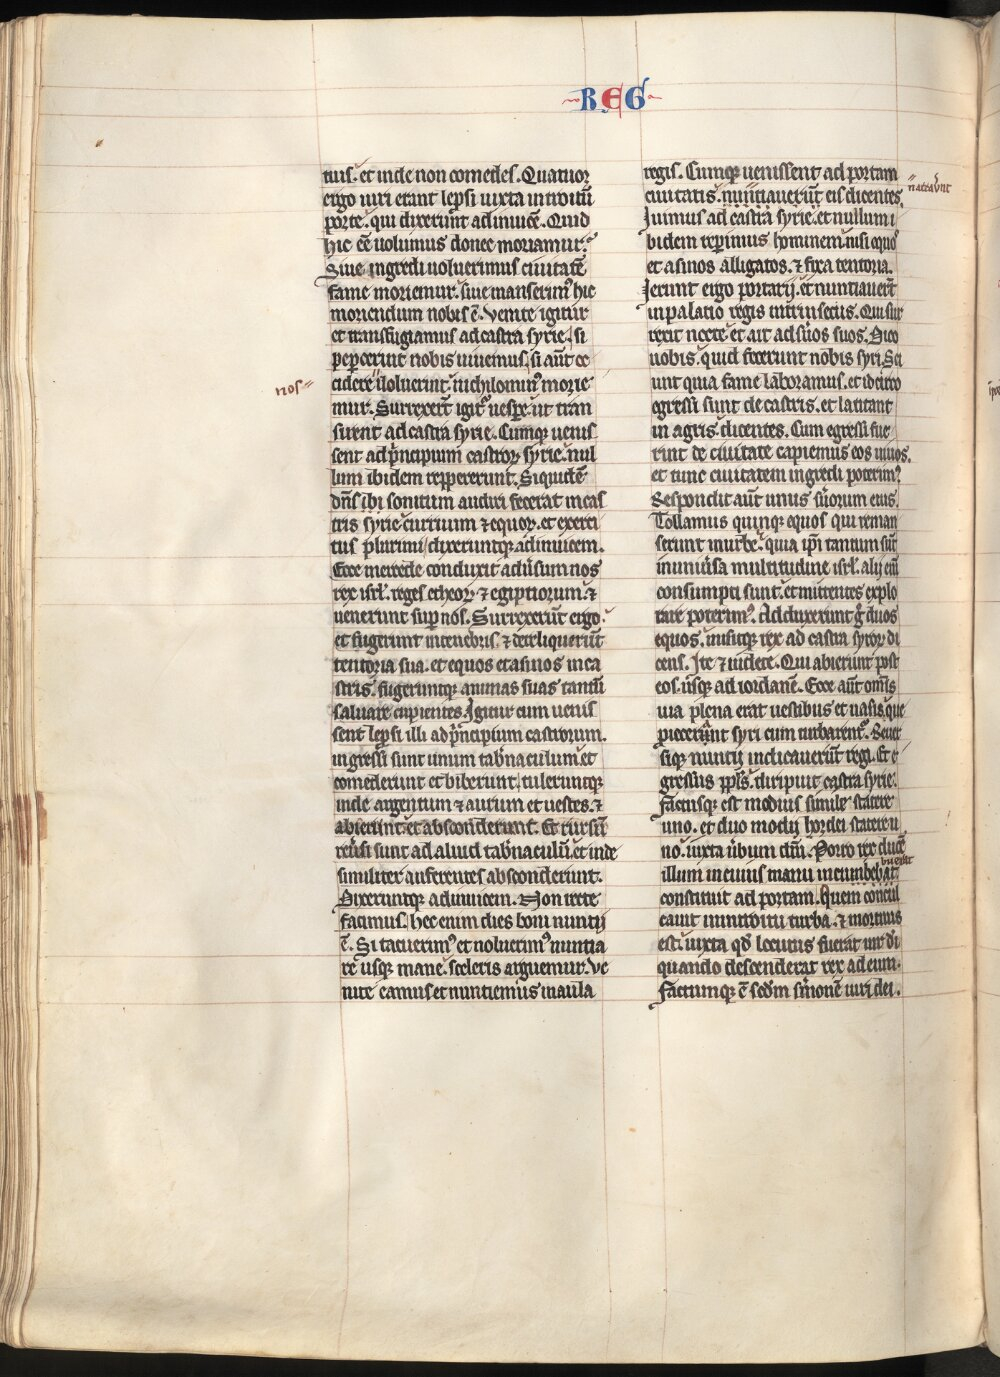 REG
tuis. et inde non comedes. Quatuor
ergo uiri erant lepsi iuxta introitū
porte. qui dixerunt adinuicē. Quid
hic eē uolumus donec moriamur.
Siue ingredi uoluerimus ciuitatē
fame moriemur. siue manserim⁹ hic
moriendum nobis ē. Venite igitur
et transfugiamus ad castra syrie. si
pepercerint nobis uiuemus. si aūt oc
cidere uoluerint. nichylomin⁹ morie
nos
mur. Surrexerūt igit̃ uespe. ut uen
irent ad castra syrie. Cumq; uenis
sent ad p̃ncipium castroꝝ syrie. nul
lum ibidem reppererunt. Siquidē
dn̄s ibi sonitum audiri fecerat in cas
tris syrie curruum ⁊ equoꝝ. et exerci
tus plurimi. dixeruntq; adinuicem.
Ecce mercede conduxit aduīsum nos
rex isrl̃. reges etheoꝝ ⁊ egiptiorum. ⁊
uenerunt sup nos. Surrexerūt ergo.
et fugerunt in tenebris. ⁊ dereliquerūt
tentoria sua. et equos et asinos in ca
stris. fugeruntq; animas suas tantū
saluare cupientes. Igitur cum uenis
sent lepsi illi ad p̃ncipium castrorum.
ingressi sunt unum tab̃naculum. et
comederunt et biberunt. tuleruntq;
inde argentum ⁊ aurum et uestes. ⁊
abierunt. et absconderunt. Et rursū
reūsi sunt ad aliud tab̃naculū. et inde
similiter auferentes absconderunt.
Dixeruntq; adinuicem. Non recte
facimus. hec enim dies boni nuntij
ē. Si tacuerim⁹ et noluerim⁹ nuntia
re usq; mane. sceleris arguemur. Ve
nite eamus et nuntiemus in aula
regis. Cumq; uenissent ad portam
ciuitatis. nuntiauerūt eis dicentes.
narrav̄nt
Iuimus ad castra syrie. et nullum i
bidem reperimus hominem. nisi equos
et asinos alligatos. ⁊ fixa tentoria.
Ierunt ergo portarij. et nuntiauerūt
in palatio regis intrinsecus. Qui sur
rexit nocte. et ait ad suos suos. Dico
uobis. quid fecerunt nobis syri. Sci
unt quia fame laboramus. et idcirco
egressi sunt de castris. et latitant
in agris. dicentes. Cum egressi fue
rint de ciuitate capiemus eos uiuos.
et tunc ciuitatem ingredi poterim⁹.
Respondit aūt unus suorum eius.
Tollamus quinq; equos qui reman
serunt in urbe. quia ip̄i tantum sūt
in uniūsa multitudine isrl̃. alij eni
consumpti sunt. et mittentes explo
rare poterim⁹. Adduxerunt g̃ duos
equos. misitq; rex ad castra syroꝝ di
cens. Ite ⁊ uidete. Qui abierunt post
eos. usq; ad iordanē. Ecce aūt omīs
uia plena erat uestibus et uasis que
proiecerunt syri cum turbarent᷑. Reuer
siq; nuntij indicauerūt regi. Et e
gressus ppl̄s. diripuit castra syrie.
factusq; est modius simile statere
uno. et duo modij hordei statere u
no. iuxta ūbum dn̄i. Porro rex ducē
illum in cuius manu incumbebat.
buerat
constituit ad portam. Quem concul
cauit in introitu turba. ⁊ mortuus
est. iuxta qđ locutus fuerat uir di
quando descenderat rex ad eum.
Factumq; ē scđm sermonē uiri dei.